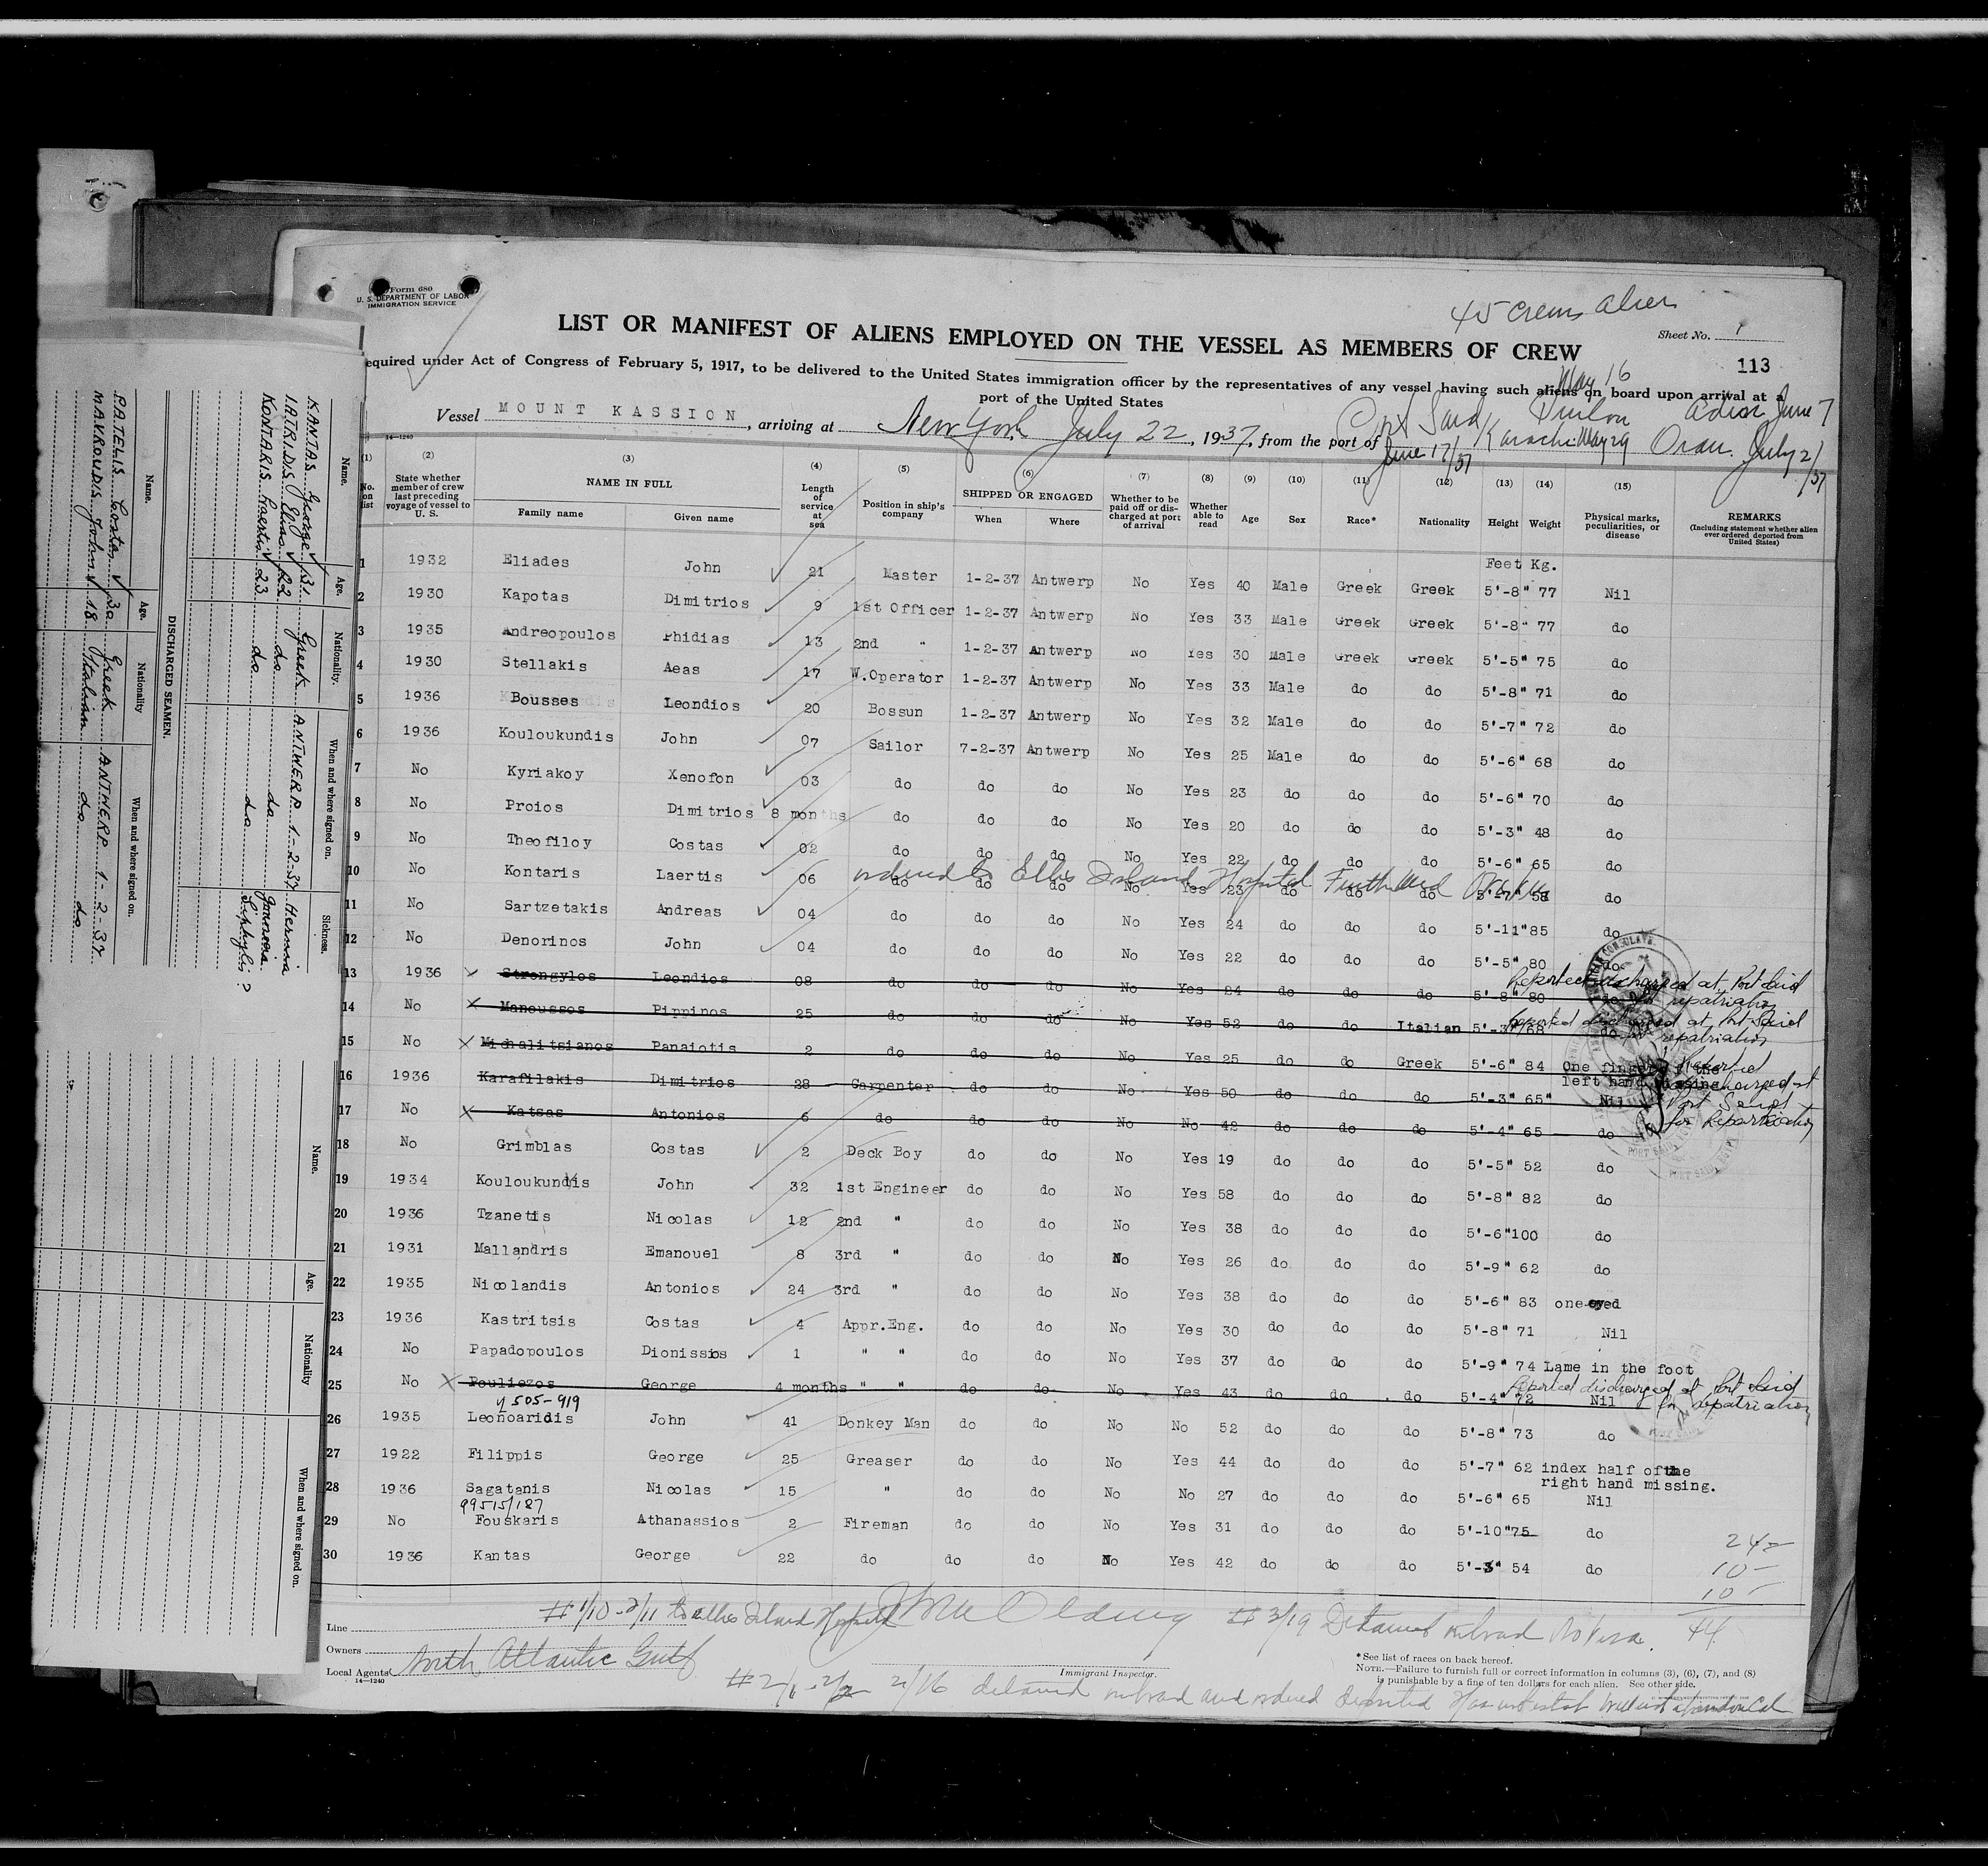 Form 680
U. S. DEPARTMENT OF LABOR
IMMIGRATION SERVICE
45 Crew Alien
LIST OR MANIFEST OF ALIENS EMPLOYED ON THE VESSEL AS MEMBERS OF CREW
Sheet No. 1
113
equired under Act of Congress of February 5, 1917, to be delivered to the United States immigration officer by the representatives of any vessel having such aliens on board upon arrival at a
port of the United States
May 16
Vessel MOUNT KASSION, arriving at New York July 22, 1937, from the port of Port Said Aden June 7
June 17/37 Karachi May 29 Oran July 2/37
14-1240
(1) (2) (3) (4) (5) (6) (7) (8) (9) (10) (11) (12) (13) (14) (15)
No. on list State whether member of crew last preceding voyage of vessel to U. S. NAME IN FULL Family name Given name Length of service at sea Position in ship's company SHIPPED OR ENGAGED When Where Whether to be paid off or discharged at port of arrival Whether able to read Age Sex Race* Nationality Height Weight Physical marks, peculiarities, or disease REMARKS (Including statement whether alien ever ordered deported from United States)
Feet Kg.
1 1932 Eliades John 21 Master 1-2-37 Antwerp No Yes 40 Male Greek Greek 5'-8" 77 Nil
2 1930 Kapotas Dimitrios 9 1st Officer 1-2-37 Antwerp No Yes 33 Male Greek Greek 5'-8" 77 do
3 1935 Andreopoulos Phidias 13 2nd " 1-2-37 Antwerp No Yes 30 Male Greek Greek 5'-5" 75 do
4 1930 Stellakis Aeas 17 W.Operator 1-2-37 Antwerp No Yes 33 Male do do 5'-8" 71 do
5 1936 Bousses Leondios 20 Bossun 1-2-37 Antwerp No Yes 32 Male do do 5'-7" 72 do
6 1936 Kouloukundis John 07 Sailor 7-2-37 Antwerp No Yes 25 Male do do 5'-6" 68 do
7 No Kyriakoy Xenofon 03 do do do No Yes 23 do do do 5'-6" 70 do
8 No Proios Dimitrios 8 months do do do No Yes 20 do do do 5'-3" 48 do
9 No Theofiloy Costas 02 do do do No Yes 22 do do do 5'-6" 65 do
ordered to Ellis Island Hospital
10 No Kontaris Laertis 06 do do do No Yes 23 do do do 5'-7" 58 do
11 No Sartzetakis Andreas 04 do do do No Yes 24 do do do 5'-11" 85 do
12 No Denorinos John 04 do do do No Yes 22 do do do 5'-5" 80 do
13 1936 Strongylos Leondios 08 do do do No Yes 24 do do do 5'-8" 80 do Reported discharged at Port Said for repatriation
14 No Manoussos Pippinos 25 do do do No Yes 52 do do Italian 5'-3" 68 do Reported discharged at Port Said for repatriation
15 No Michalitsianos Panaiotis 2 do do do No Yes 25 do do Greek 5'-6" 84 One finger of the left hand missing
16 1936 Karafilakis Dimitrios 28 Carpenter do do No Yes 50 do do do 5'-3" 65" Nil
Reported discharged at Port Said for Repatriation
17 No Katsas Antonios 6 do do do No No 42 do do do 5'-4" 65 do
18 No Grimblas Costas 2 Deck Boy do do No Yes 19 do do do 5'-5" 52 do
19 1934 Kouloukundis John 32 1st Engineer do do No Yes 58 do do do 5'-8" 82 do
20 1936 Tzanetis Nicolas 12 2nd " do do No Yes 38 do do do 5'-6" 100 do
21 1931 Mallandris Emanouel 8 3rd " do do No Yes 26 do do do 5'-9" 62 do
22 1935 Nicolandis Antonios 24 3rd " do do No Yes 38 do do do 5'-6" 83 one eyed
23 1936 Kastritsis Costas 4 Appr.Eng. do do No Yes 30 do do do 5'-8" 71 Nil
24 No Papadopoulos Dionissios 1 " " do do No Yes 37 do do do 5'-9" 74 Lame in the foot
25 No Pouliezos George 4 months " " do do No Yes 43 do do do 5'-4" 72 Nil Reported discharged at Port Said for repatriation
505-919
26 1935 Leonoaridis John 41 Donkey Man do do No No 52 do do do 5'-8" 73 do
27 1922 Filippis George 25 Greaser do do No Yes 44 do do do 5'-7" 62 index half of the right hand missing.
28 1936 Sagatanis Nicolas 15 " do do No No 27 do do do 5'-6" 65 Nil
99515/127
29 No Fouskaris Athanassios 2 Fireman do do No Yes 31 do do do 5'-10" 75 do
30 1936 Kantas George 22 do do do No Yes 42 do do do 5'-3" 54 do
24
10
10
44
Line
#1/10-2/11 to Ellis Island Hospital
#3/19 Detained on board No Visa.
Owners
Local Agents North Atlantic Gulf
14-1240
Immigrant Inspector.
* See list of races on back hereof.
NOTE.—Failure to furnish full or correct information in columns (3), (6), (7), and (8)
is punishable by a fine of ten dollars for each alien. See other side.
#2/1-2/2 2/16 detained on board and ordered deported
Name. Age. Nationality. When and where signed on. Sickness.
KANTAS George 31 Greek ANTWERP 1-2-37 Hernia
IATRIDIS Elias 22 do do
KONTARIS Laertis 23 do do Syphylis ?
DISCHARGED SEAMEN.
Name. Age. Nationality When and where signed on.
PATELIS Costas 30 Greek ANTWERP 1-2-37
MAVROUDIS John 18 Italian do do
Name. Age. Nationality When and where signed on.